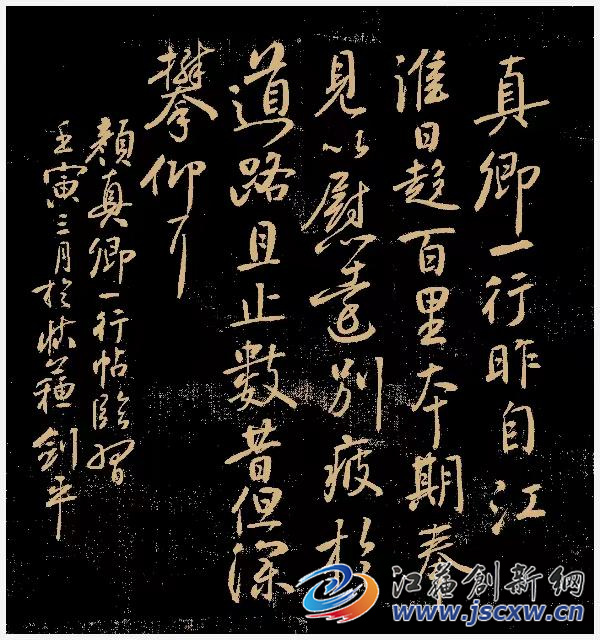 真卿一行昨自江
淮日趍百里本期奉
見以慰遠別疲於
道路且止數昔但深
攀仰耳
顏真卿一行帖臨習
壬寅三月於
劍平
江蘇創新網
www.jscxw.cn